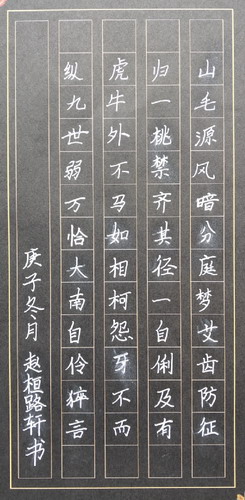 山毛源风暗分庭梦艾齿防征
归一桃禁齐其径一自俐及有
虎牛外不马如相柯怨牙不而
纵九世弱万恰大南自伶猝言
庚子冬月赵桓路轩书